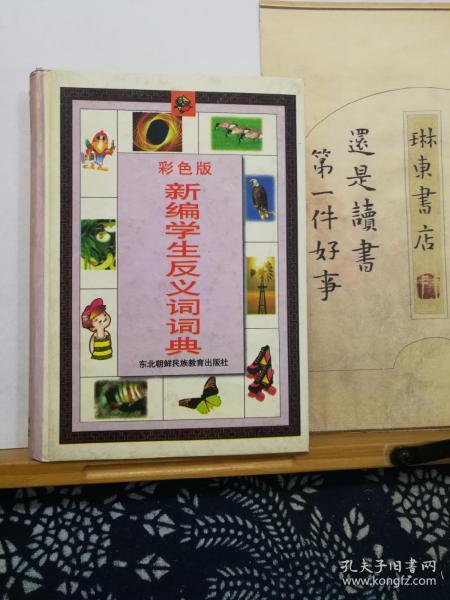 彩色版
新编学生反义词词典
东北朝鲜民族教育出版社
琳東書店
還是讀書
第一件好事
孔夫子旧书网
www.kongfz.com